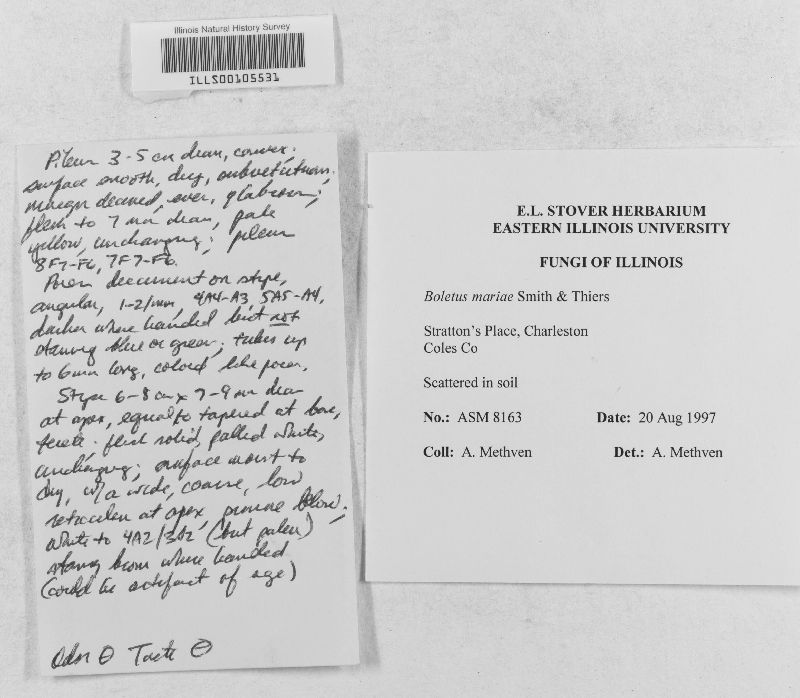 Illinois Natural History Survey
ILLS00105531
Pileus 3-5 cm diam, convex.
surface smooth, dry, subvelutinous.
margin decurved, even, glabrous;
flesh to 7 mm diam, pale
yellow, unchanging; pileus
8F7-F6, 7F7-F6.
Pores decurrent on stipe,
angular, 1-2/mm, 4A4-A3, 5A5-A4,
darker where handled but not
staining blue or green; tubes up
to 6mm long, colored like pores.
Stipe 6-8 cm x 7-9 mm diam
at apex, equal to tapered at base,
terete. flesh solid, pallid white,
unchanging; surface moist to
dry, w/a wide, coarse, low
reticulum at apex, pruinose below.
white to 4A2/3A2 (but paler)
staining brown where handled
(could be artifact of age)
Odor ⊖ Taste ⊖
E.L. STOVER HERBARIUM
EASTERN ILLINOIS UNIVERSITY
FUNGI OF ILLINOIS
Boletus mariae Smith & Thiers
Stratton's Place, Charleston
Coles Co
Scattered in soil
No.: ASM 8163 Date: 20 Aug 1997
Coll: A. Methven Det.: A. Methven